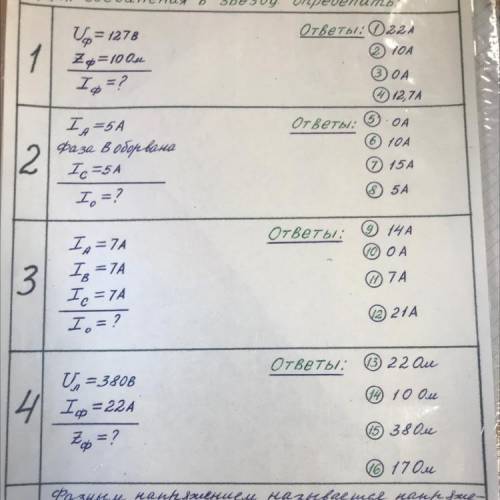 соединения в звезду определить
1
Uф = 127В
Zф = 10 Ом
Iф = ?
Ответы: ① 22А
② 10А
③ 0А
④ 12,7А
2
IА = 5А
фаза В оборвана
IС = 5А
I₀ = ?
Ответы: ⑤ 0А
⑥ 10А
⑦ 15А
⑧ 5А
3
IА = 7А
IВ = 7А
IС = 7А
I₀ = ?
Ответы: ⑨ 14А
⑩ 0А
⑪ 7А
⑫ 21А
4
Uл = 380В
Iф = 22А
Zф = ?
Ответы: ⑬ 22 Ом
⑭ 10 Ом
⑮ 38 Ом
⑯ 17 Ом
Фазным напряжением называется напряже-